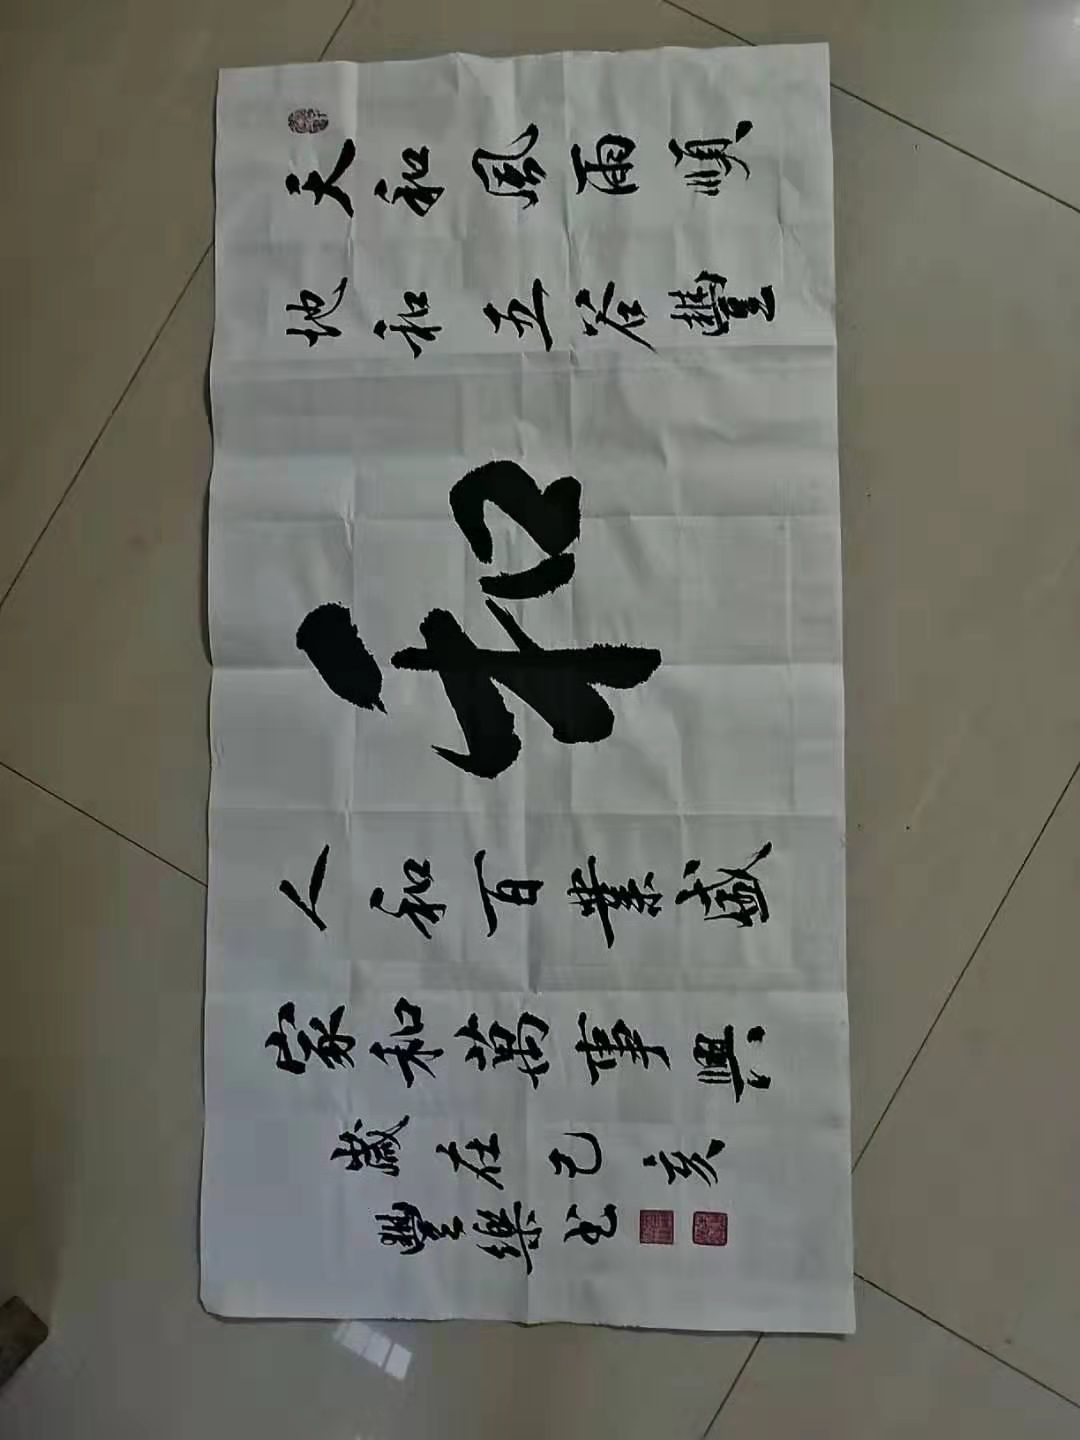 天和風雨順
地和五谷豐
和
人和百業盛
家和萬事興
歲在己亥
豐樂书